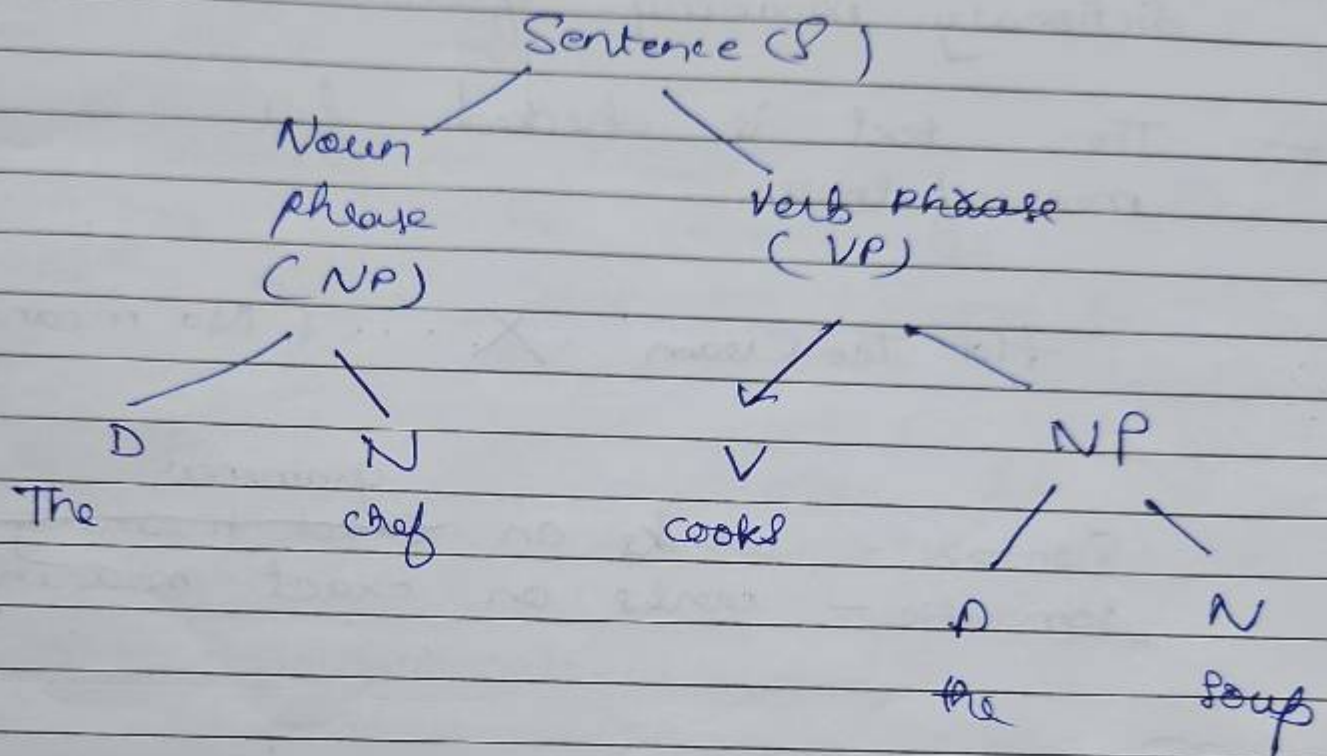 Sentence (S)
Noun
phrase
(NP)
Verb phrase
(VP)
D N V NP
The chef cooks
D N
the soup